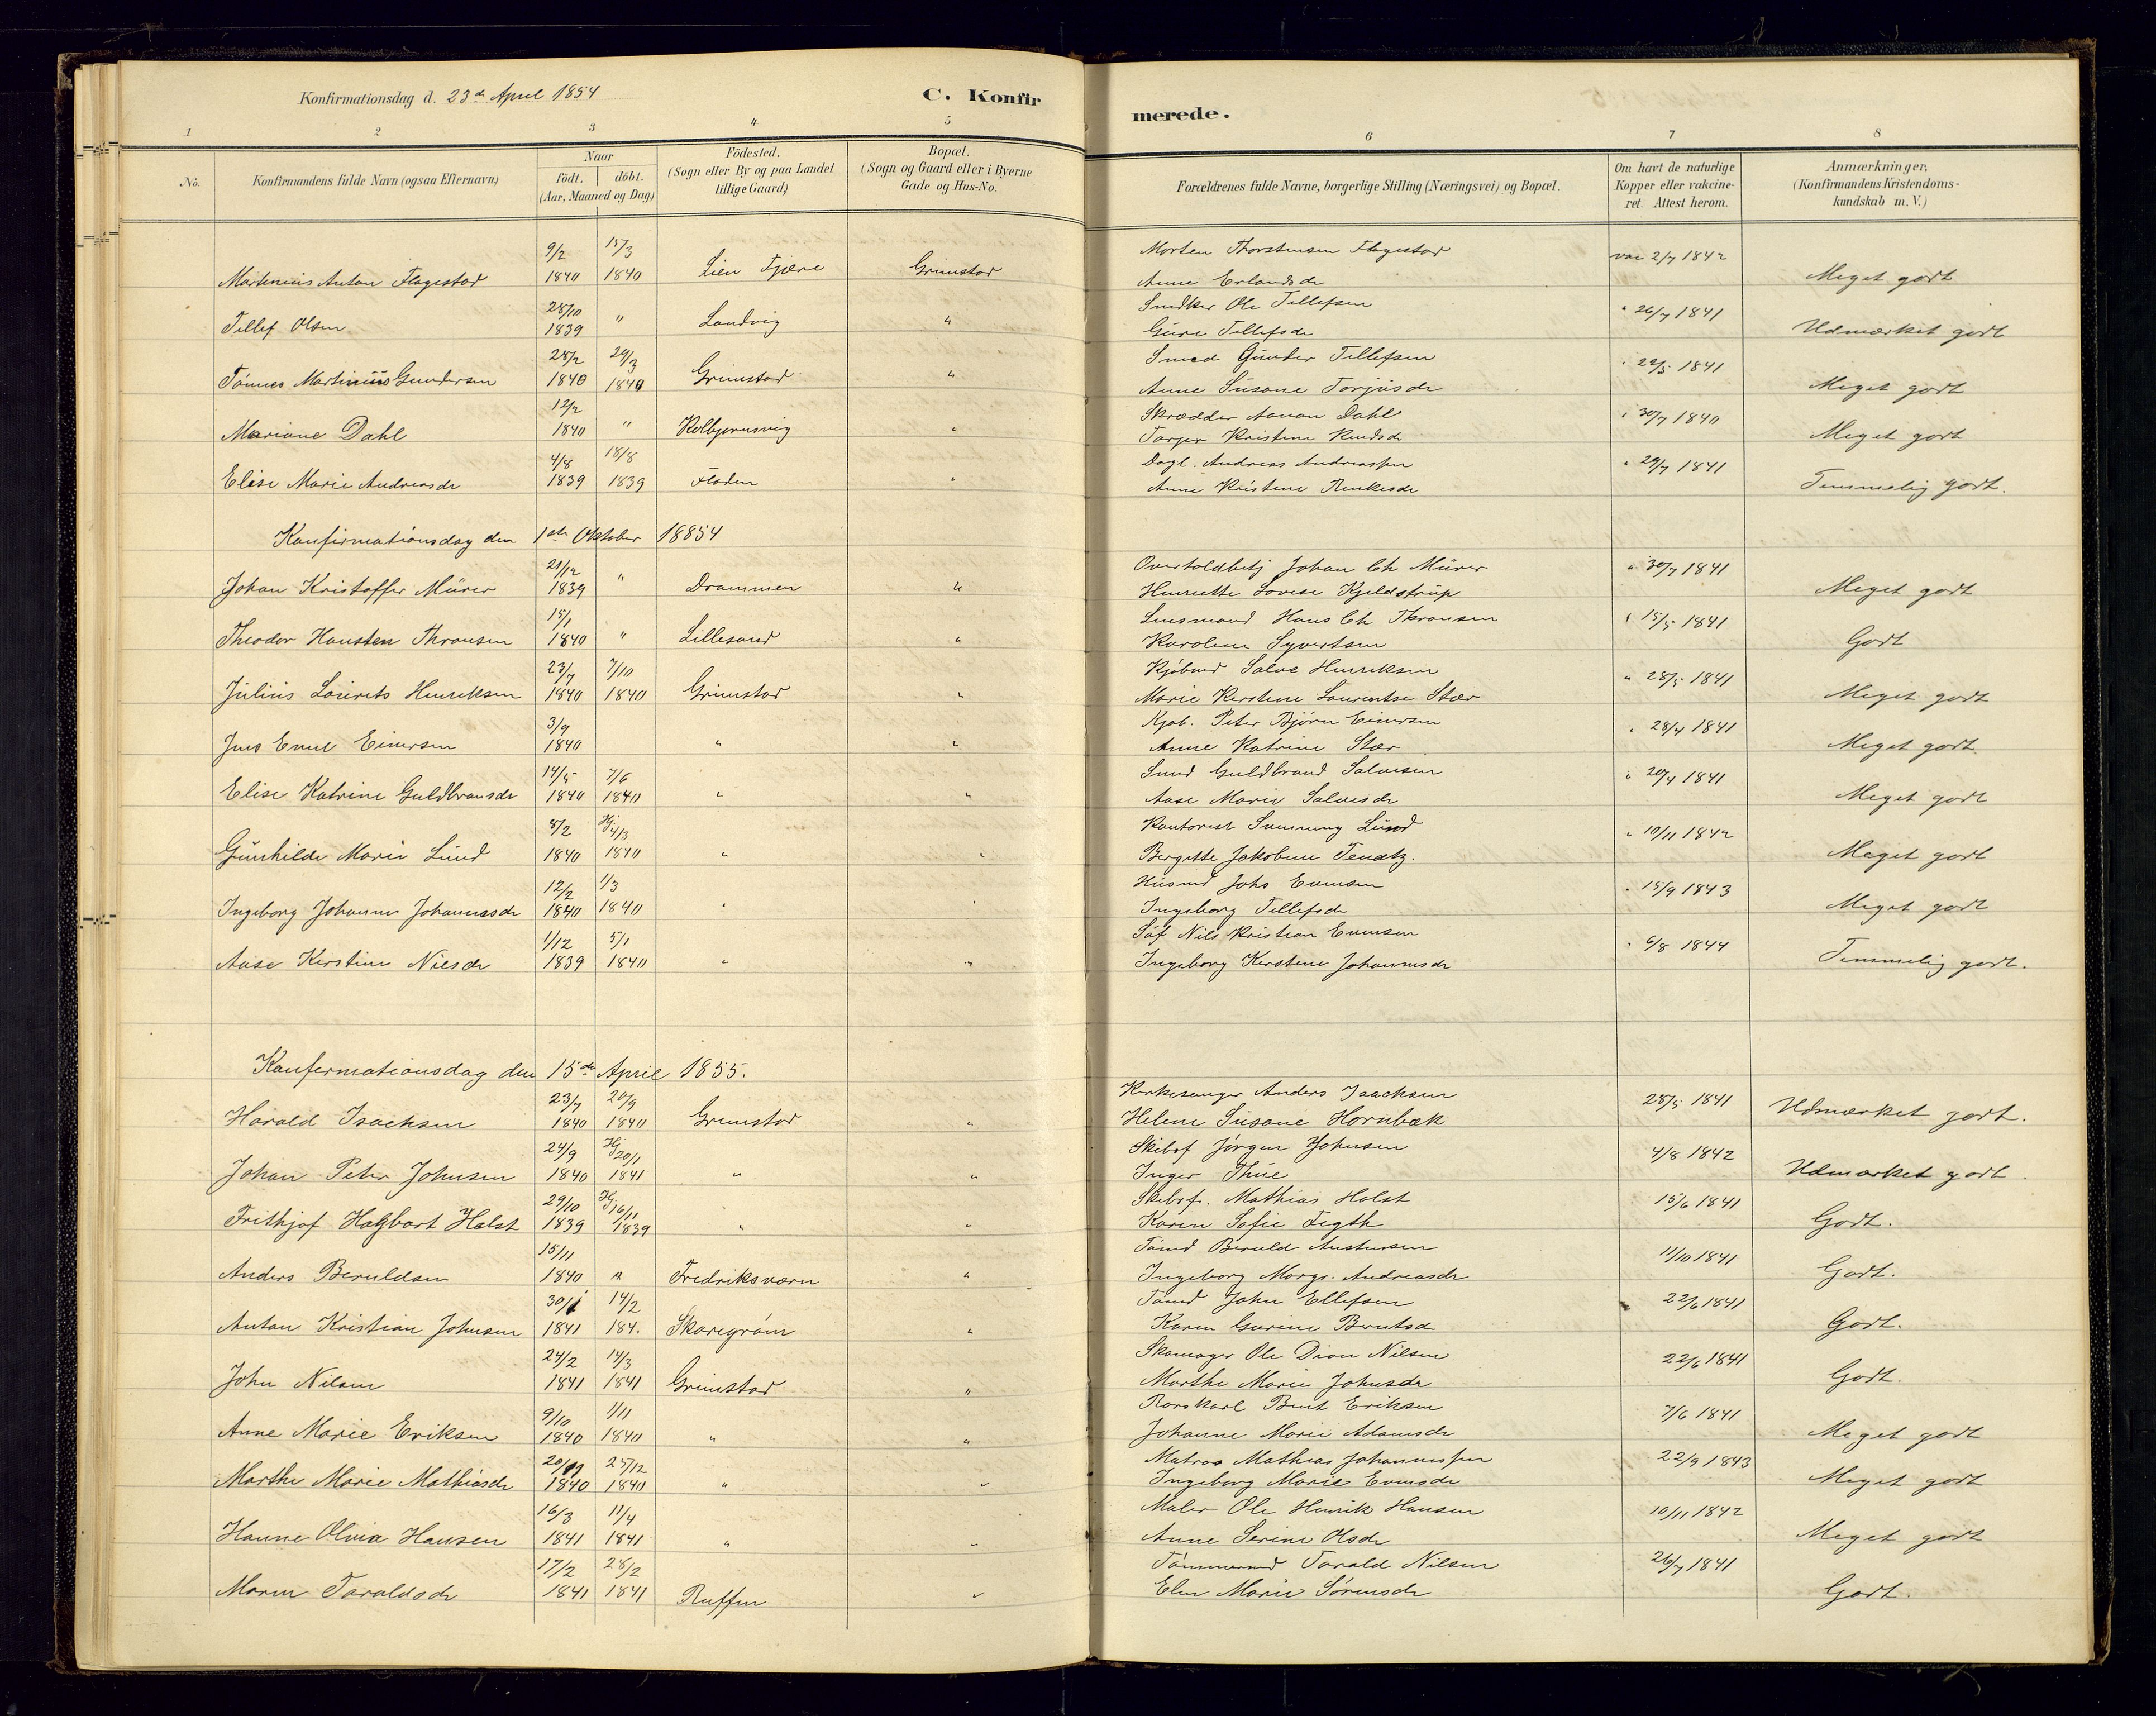 Konfirmationsdag d. 23de April 1854
C. Konfirmerede.
1 2 3 4 5 6 7 8
No.
Konfirmandens fulde Navn (ogsaa Efternavn)
Naar
födt. döbt.
(Aar, Maaned og Dag)
Födested.
(Sogn eller By og paa Landet
tillige Gaard)
Bopæl.
(Sogn og Gaard eller i Byerne
Gade og Hus-No.
Forældrenes fulde Navne, borgerlige Stilling (Næringsvei) og Bopæl.
Om havt de naturlige
Kopper eller vakcine-
ret. Attest herom.
Anmærkninger,
(Konfirmandens Kristendoms-
kundskab m. V.)
9/2 15/3 Morten Thorstensen Flagestad vac 2/7 1842
Martinius Anton Flagestad 1840 1840 Lien Fjære Grimstad Anne Erlandsdr Meget godt
28/10 Smdker Ole Tellefsen " 26/7 1841
Tellef Olsen 1839 " Landvig " Gure Tellefsdr Udmærket godt
28/2 29/3 Smed Gunder Tellefsen " 22/5 1841
Tönnes Martinius Gundersen 1840 1840 Grimstad " Anne Susane Torjusdr Meget godt
12/2 Skrædder Aanon Dahl " 30/7 1840
Mariane Dahl 1840 " Kolbjørnsvig " Kristine Knudsdr Meget godt
4/8 18/8 Dagl. Andreas Andreassen " 29/7 1841
Elise Marie Andreasdr 1839 1839 Floden " Anne Kristine Renkesdr Temmelig godt.
Konfirmationsdag den 1ste Oktober 18854
21/12 Overtoldbetj Johan Ch Mürer " 30/7 1841
Johan Kristoffer Mürer 1839 " Drammen " Henriette Lovise Kjeldstrup Meget godt
15/1 Lensmand Hans Ch Thronsen " 15/5 1841
Theodor Hansten Thronsen 1840 " Lillesand " Karoline Syvertsen Godt
23/7 7/10 Kjöbmd Salve Henriksen " 28/5 1841
Julius Laurits Henriksen 1840 1840 Grimstad " Marie Kerstine Laurentse Stær Meget godt
3/9 Kjöb. Peter Bjørn Einersen " 28/4 1841
Jens Emil Einersen 1840 " " Anne Katrine Stær Meget godt
14/5 7/6 Smed Guldbrand Salvesen " 20/4 1841
Elise Katrine Guldbransdr 1840 1840 " " Aase Marie Salvesdr Meget godt
8/2 Hj 4/3 Kontorist Lund " 10/11 1842
Gunhilde Marie Lund 1840 1840 " " Bergitte Jakobine Meget godt
12/2 1/3 Husmd Johs Evensen " 15/9 1843
Ingeborg Johanne Johannesdr 1840 1840 " " Ingeborg Tellefsdr Meget godt
1/12 5/1 Söf Nils Kristian Evensen " 6/8 1844
Aase Kerstine Nilsdr 1839 1840 " " Ingeborg Kerstine Johannesdr Temmelig godt.
Konfermationsdag den 15de April 1855.
23/7 20/9 Kirkesanger Anders Isachsen 28/5 1841
Harald Isachsen 1840 1840 Grimstad " Helene Susane Hornbæk Udmærket godt.
24/9 Hj 20/1 Skibsf Jørgen Johnsen 4/8 1842
Johan Peter Johnsen 1840 1841 " " Inger Thue Udmærket godt.
29/10 Hj 16/11 Skibsf. Mathias Holst 15/6 1841
Frithjof Hagbart Holst 1839 1839 " " Karen Sofie Fegth Godt.
15/11 Tömd Beruld Austensen 11/10 1841
Anders Beruldsen 1840 " Fredriksværn " Ingeborg Margr. Andreasdr Godt.
30/1 14/2 Tömd John Ellefsen 22/6 1841
Anton Kristian Johnsen 1841 184. Skaregröm " Karen Gurine Berntsd Godt.
24/2 14/3 Skomager Ole Dion Nilsen 22/6 1841
John Nilsen 1841 1841 Grimstad " Marthe Marie Johnsdr Godt.
9/10 1/11 Rorskarl Bent Eriksen 7/6 1841
Anne Marie Eriksen 1840 1840 " " Johanne Marie Adamsdr Meget godt
20/9 25/12 Matros Mathias Johannessen 22/9 1843
Marthe Marie Mathiasdr 1840 1840 " " Ingeborg Marie Evensdr Meget godt
16/3 11/4 Maler Ole Henrik Hansen 10/11 1842
Hanne Olivia Hansen 1841 1841 " " Anne Serine Olsdr Meget godt
17/2 28/2 Tömmermd Tarald Nilsen 26/7 1841
Maren Taraldsdr 1841 1841 Ruffen " Elen Marie Sörensdr Godt.